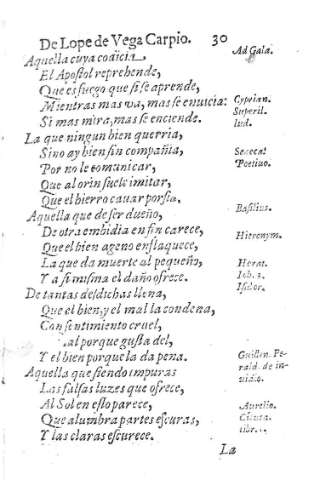 De Lope de Vega Carpio. 30
Aquella cuya codicia
El Apostol reprehende, Ad Gala.
Que es fuego que si se aprende,
Mientras mas va, mas se Cyprian.
Si mas mira, mas se enciende. Superil.
La que ningun bien querria, iud.
Sino ay bien sin compañia,
Por no le comunicar,
Que al orin suele imitar,
Que el hierro cauar porfia. Basilius.
Aquella que de ser dueño,
De otra embidia en fin carece, Hieronym.
Que el bien ageno enflaquece,
La que da muerte al pequeño, Horat.
Y a si misma el daño ofrece. Iob. 2.
De tantas desdichas llena, Isidor.
Que el bien, y el mal la condena,
Con sentimiento cruel,
al porque gusta del,
Y el bien porque la da pena. Guillen. Pe-
Aquella que siendo impuras rald. de in-
Las falsas luzes que ofrece, uidia.
Al Sol en esto parece, Aurelio.
Que alumbra partes escuras,
Y las claras escurece. libr.
La